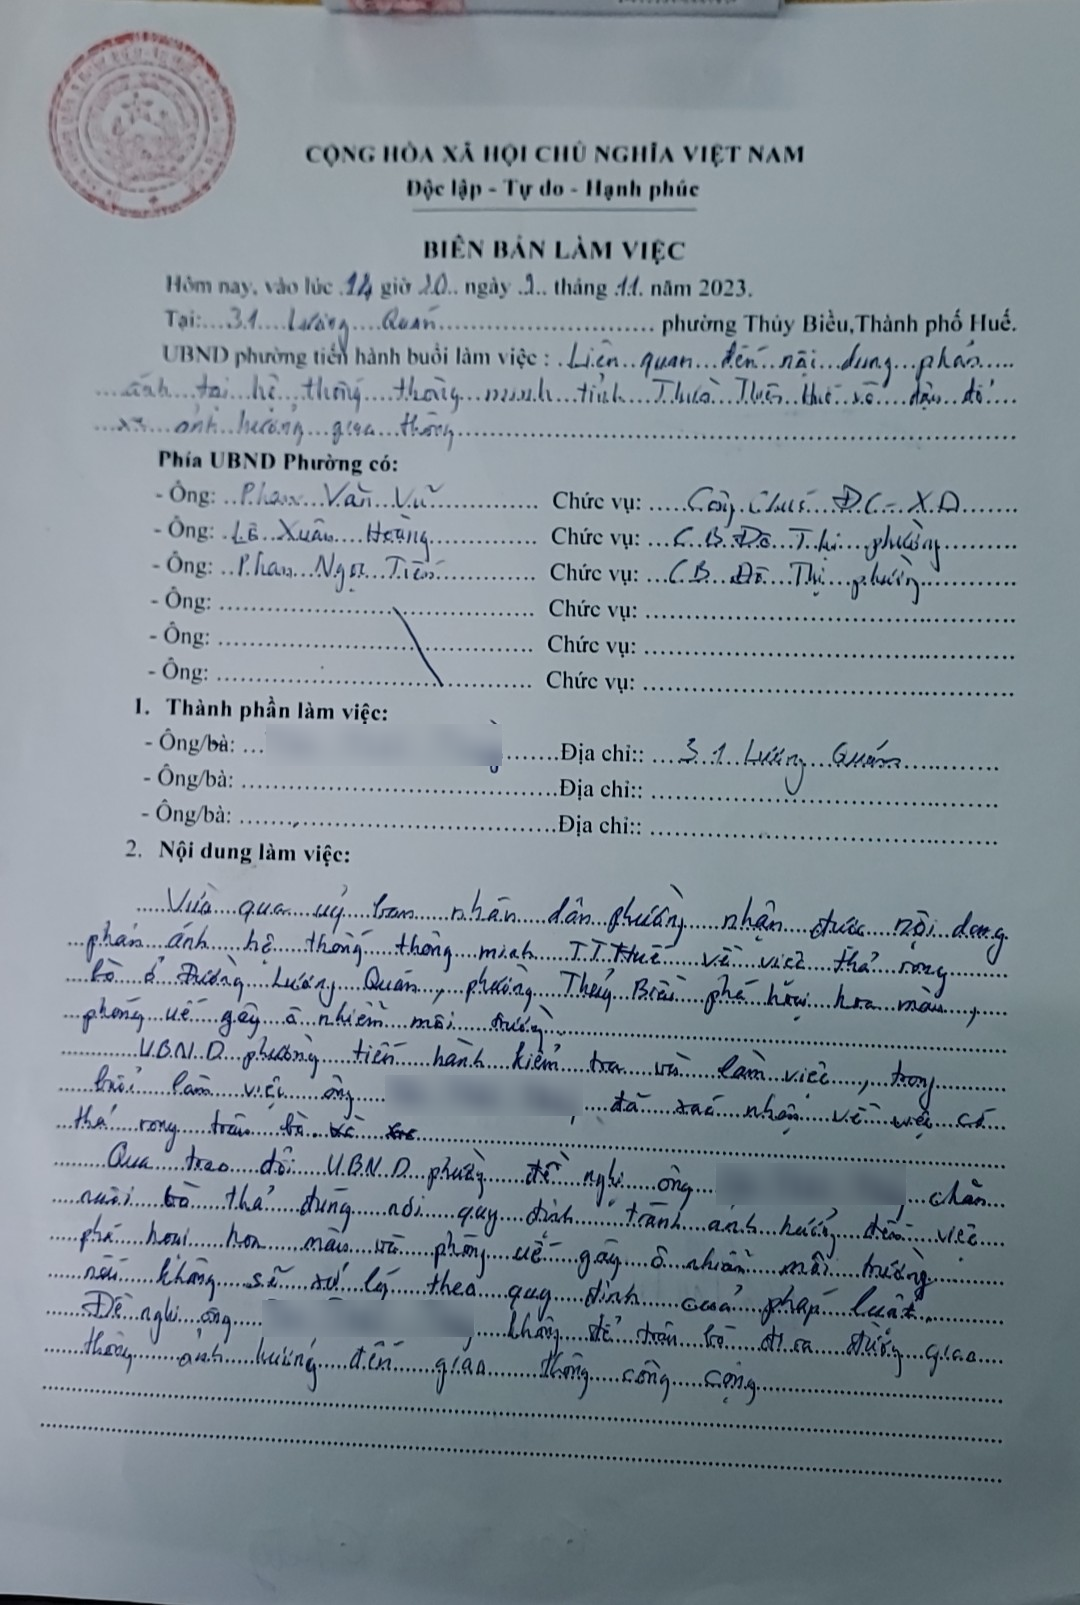 CỘNG HÒA XÃ HỘI CHỦ NGHĨA VIỆT NAM
Độc lập - Tự do - Hạnh phúc
BIÊN BẢN LÀM VIỆC
Hôm nay, vào lúc 14 giờ 20 ngày 2 tháng 11 năm 2023.
Tại: 31 Lương Quán phường Thủy Biều,Thành phố Huế.
UBND phường tiến hành buổi làm việc : Liên quan đến nội dung phản
ánh tại hệ thống thông minh tỉnh Thừa Thiên Huế về
ảnh hưởng giao thông
Phía UBND Phường có:
- Ông: Phan Văn Vũ Chức vụ: Công Chức ĐC-XD
- Ông: Lê Xuân Hoàng Chức vụ: CB Đô Thị phường
- Ông: Phan Ngọc Tiến Chức vụ: CB Đô Thị phường
- Ông: Chức vụ:
- Ông: Chức vụ:
- Ông: Chức vụ:
1. Thành phần làm việc:
- Ông/bà: Địa chỉ:: 31 Lương Quán
- Ông/bà: Địa chỉ::
- Ông/bà: Địa chỉ::
2. Nội dung làm việc:
Vừa qua uỷ ban nhân dân phường nhận được nội dung
phản ánh hệ thống thông minh TTHuế về việc thả rong
bò ở Đường Lương Quán, phường Thuỷ Biều phá hoại hoa màu,
phóng uế gây ô nhiễm môi trường.
UBND phường tiến hành kiểm tra và làm việc, trong
buổi làm việc ông đã xác nhận về việc có
thả rong trâu bò
Qua trao đổi UBND phường đề nghị ông chăn
nuôi bò thả đúng nơi quy định tránh ảnh hưởng đến việc
phá hoại hoa màu và phóng uế gây ô nhiễm môi trường
nếu không sẽ xử lý theo quy định của pháp luật.
Đề nghị ông không để trâu bò đi ra đường giao
thông ảnh hưởng đến giao thông công cộng